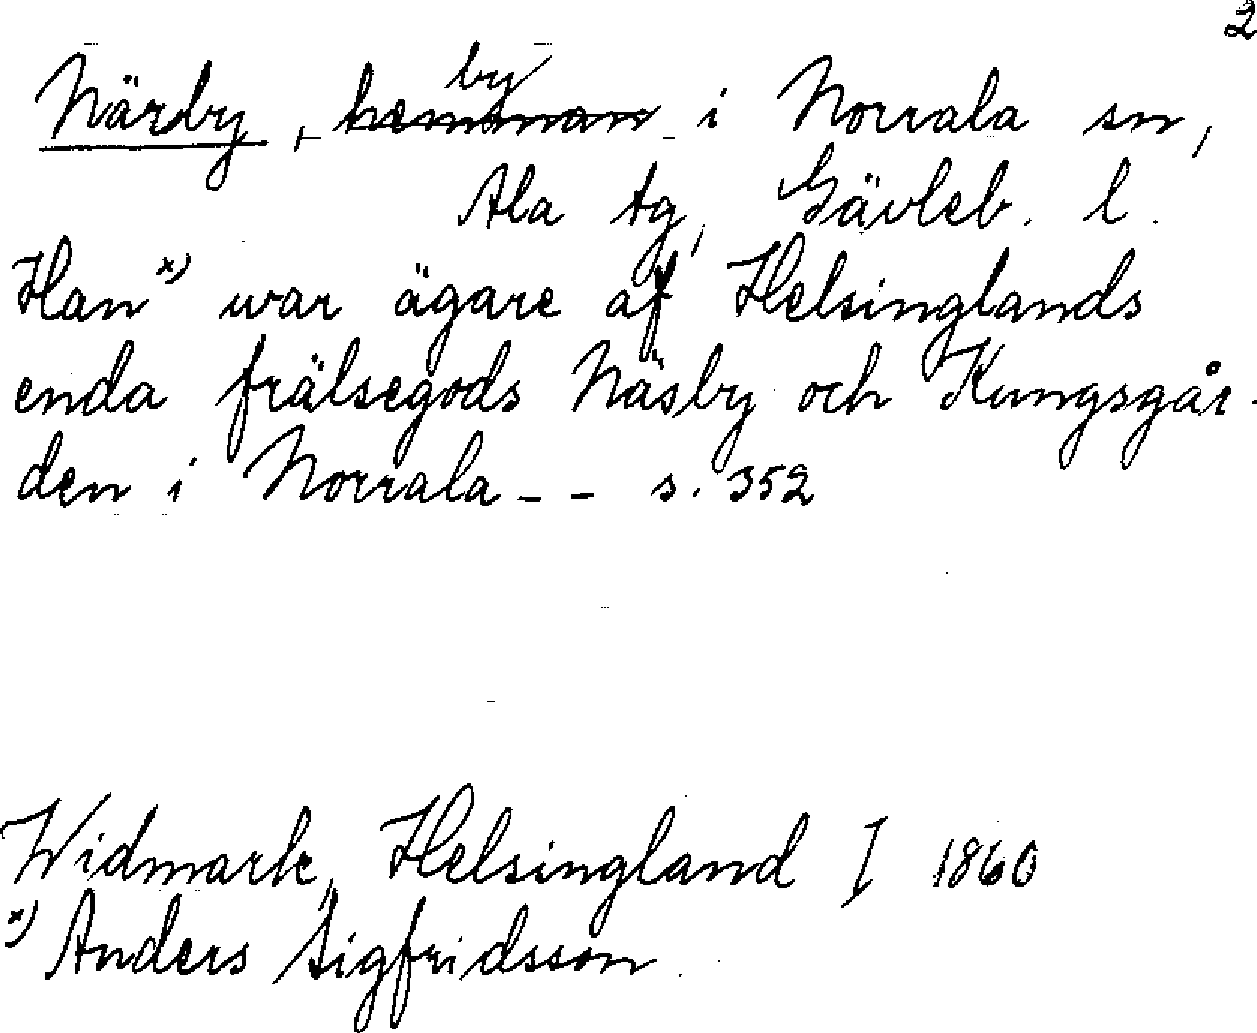 2
Närby, by i Norrala sn,
Ala tg, Gävleb. l.
Han x) war ägare af Helsinglands
enda frälsegods Näsby och Kungsgår-
den i Norrala - - s. 352
Widmark, Helsingland I 1860
x) Anders Sigfridsson.